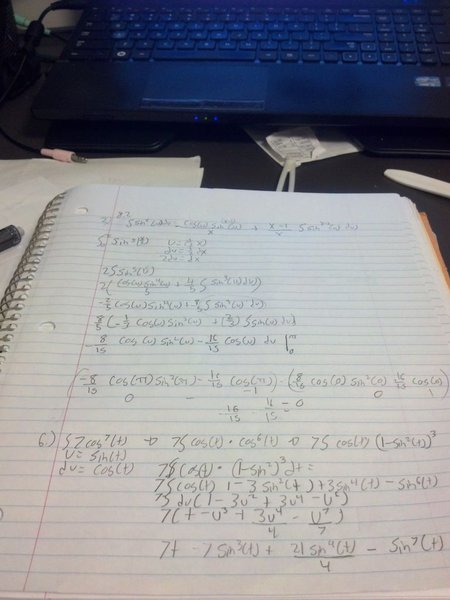 8.2
2) ∫ sin^x(u) du = -cos(u) sin^(x-1)(u) / x + x-1 / x ∫ sin^(x-2)(u) du
u = 1/2 x
du = 1/2 dx
2du = dx
2∫ sin^5(u)
2( cos(u) sin^4(u) / 5 + 4/5 ∫ sin^3(u) du)
-2/5 cos(u) sin^4(u) + 8/5 ∫ sin^3(u) du
8/5 (-1/3 cos(u) sin^2(u) + (2/3) ∫ sin(u) du)
-8/15 cos(u) sin^2(u) - 16/15 cos(u) du |
(-8/15 cos(π) sin^2(π) - 16/15 cos(π)) - (8/15 cos(0) sin^2(0) 16/15 cos(0))
0 - -1 0 1
16/15 - 16/15 = 0
6.) ∫ 7cos^7(t) → 7∫ cos(t) · cos^6(t) → 7∫ cos(t) (1-sin^2(t))^3
u = sin(t)
du = cos(t)
7∫ cos(t) · (1-sin^2)^3 dt =
7∫ cos(t) 1 - 3sin^2(t) + 3sin^4(t) - sin^6(t)
7∫ du (1 - 3u^2 + 3u^4 - u^6)
7(t - u^3 + 3u^4/4 - u^7/7)
7t - 7sin^3(t) + 21 sin^4(t)/4 - sin^7(t)